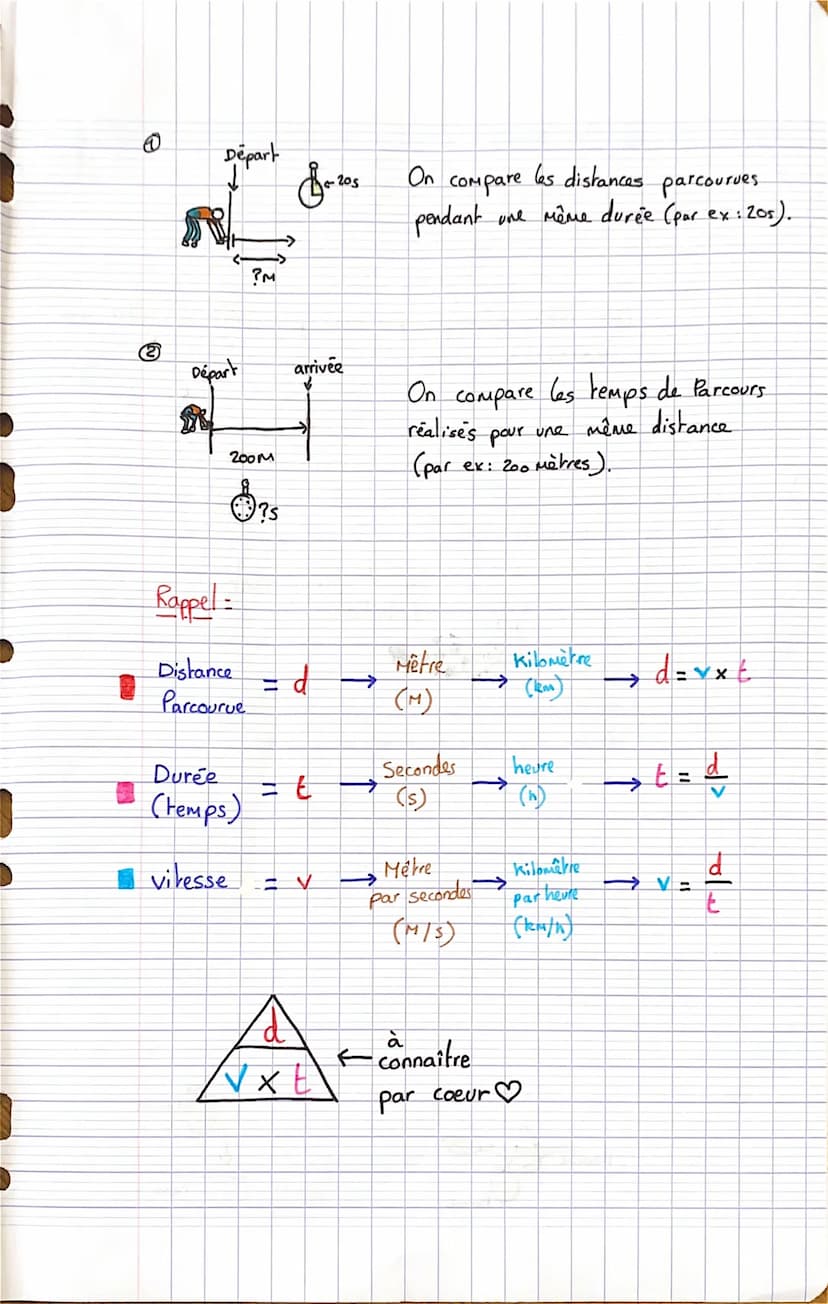 ①
Départ
←20s
?M
On compare les distances parcourues
pendant une même durée (par ex : 20s).
②
Départ
arrivée
200M
?s
On compare les temps de Parcours
réalisés pour une même distance
(par ex: 200 mètres).
Rappel :
Distance
Parcourue
= d → Mètre (M) → Kilomètre (km) → d = v x t
Durée
(temps)
= t → Secondes (s) → heure (h) → t = d/v
vitesse = v → Mètre par secondes (M/s) → Kilomètre par heure (km/h) → v = d/t
d
V x t
← à
connaître
par coeur ♡